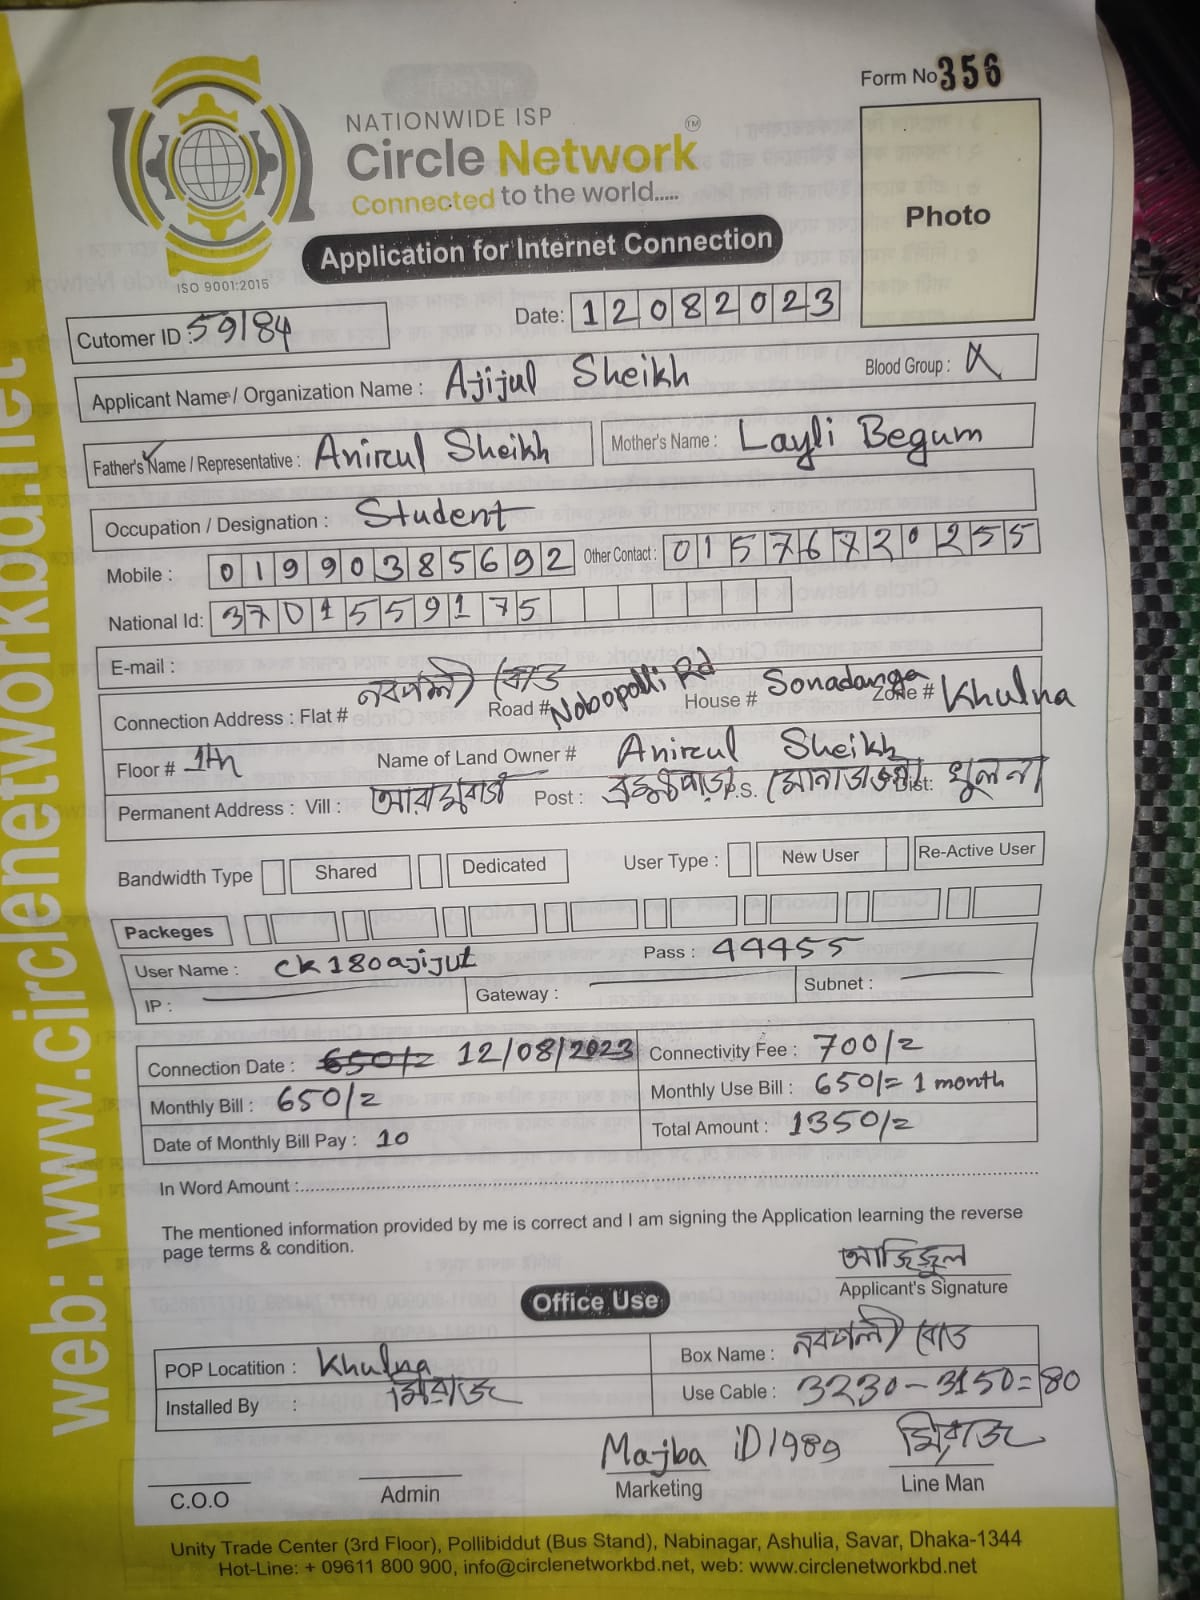 Form No 356
NATIONWIDE ISP
Circle Network TM
Connected to the world.....
ISO 9001:2015
Application for Internet Connection
Photo
Cutomer ID : 59184
Date: 12082023
Applicant Name / Organization Name : Ajijul Sheikh Blood Group : X
Father's Name / Representative : Anirul Sheikh Mother's Name : Layli Begum
Occupation / Designation : Student
Mobile : 01990385692 Other Contact : 01576720255
National Id: 3701559175
E-mail :
Connection Address : Flat # নবপল্লী রোড Road # Nobopolli Rd House # Sonadanga Zone # Khulna
Floor # 1th Name of Land Owner # Anirul Sheikh
Permanent Address : Vill : Post : P.S. Dist: খুলনা
Bandwidth Type Shared Dedicated User Type : New User Re-Active User
Packeges
User Name : ck180ajijul Pass : 44455
IP : Gateway : Subnet :
Connection Date : 650/= 12/08/2023 Connectivity Fee : 700/=
Monthly Bill : 650/= Monthly Use Bill : 650/= 1 month
Date of Monthly Bill Pay : 10 Total Amount : 1350/=
In Word Amount :
The mentioned information provided by me is correct and I am signing the Application learning the reverse
page terms & condition.
আজিজুল
Applicant's Signature
Office Use
POP Locatition : Khulna Box Name : নবপল্লী রোড
Installed By : মিরাজ Use Cable : 3230-3150=80
Majba iD1989 মিরাজ
C.O.O Admin Marketing Line Man
Unity Trade Center (3rd Floor), Pollibiddut (Bus Stand), Nabinagar, Ashulia, Savar, Dhaka-1344
Hot-Line: + 09611 800 900, info@circlenetworkbd.net, web: www.circlenetworkbd.net
web: www.circlenetworkbd.net